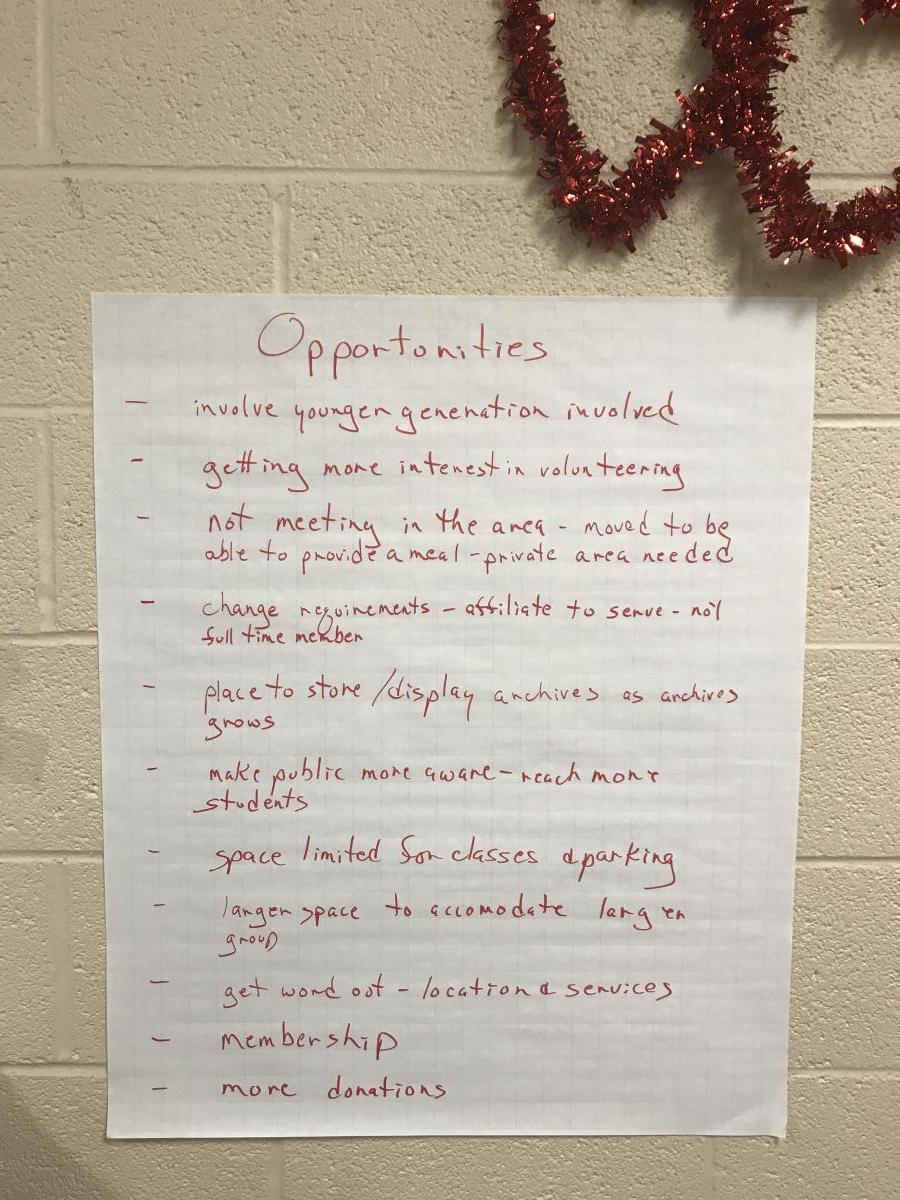 Opportunities
- involve younger generation involved
- getting more interest in volunteering
- not meeting in the area - moved to be
able to provide a meal - private area needed
- change requirements - affiliate to serve - not
full time member
- place to store / display archives as archives
grows
- make public more aware - reach more
students
- space limited for classes & parking
- larger space to accomodate larger
group
- get word out - location & services
- membership
- more donations